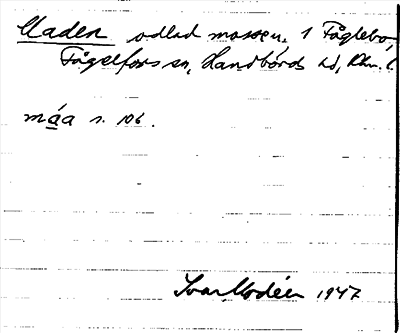 Maden odlad mossen, 1 Fåglebo,
Fågelfors sn, Handbörds hd, Klm. l.
máa s. 106.
Ivar Modéer 1947